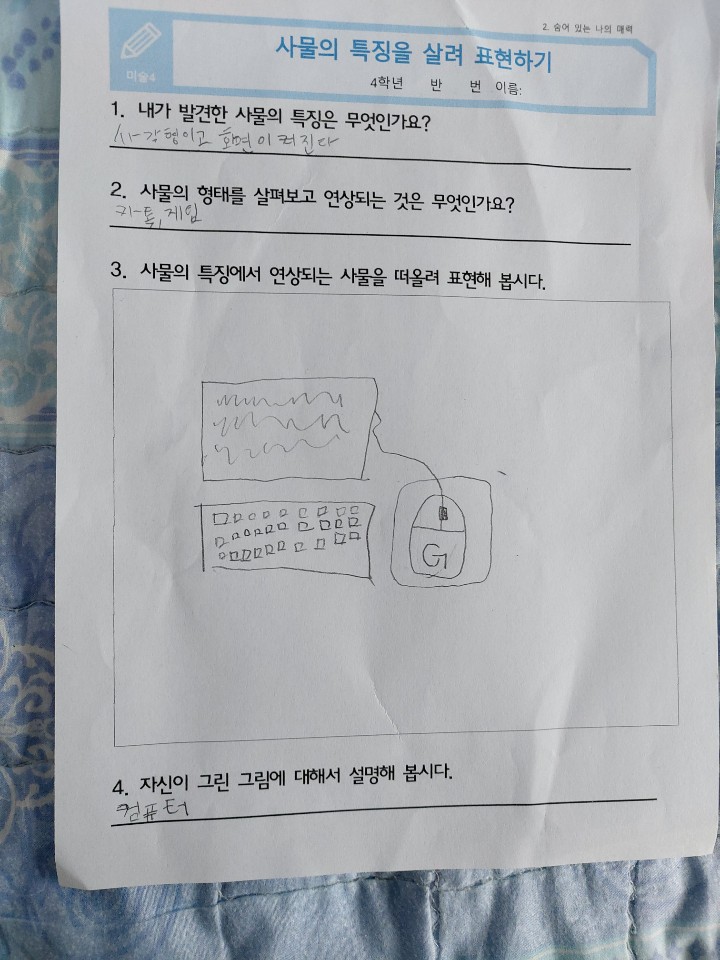 2. 숨어 있는 나의 매력
미술4
사물의 특징을 살려 표현하기
4학년 반 번 이름:
1. 내가 발견한 사물의 특징은 무엇인가요?
사각형이고 화면이 켜진다
2. 사물의 형태를 살펴보고 연상되는 것은 무엇인가요?
카톡, 게임
3. 사물의 특징에서 연상되는 사물을 떠올려 표현해 봅시다.
G
4. 자신이 그린 그림에 대해서 설명해 봅시다.
컴퓨터